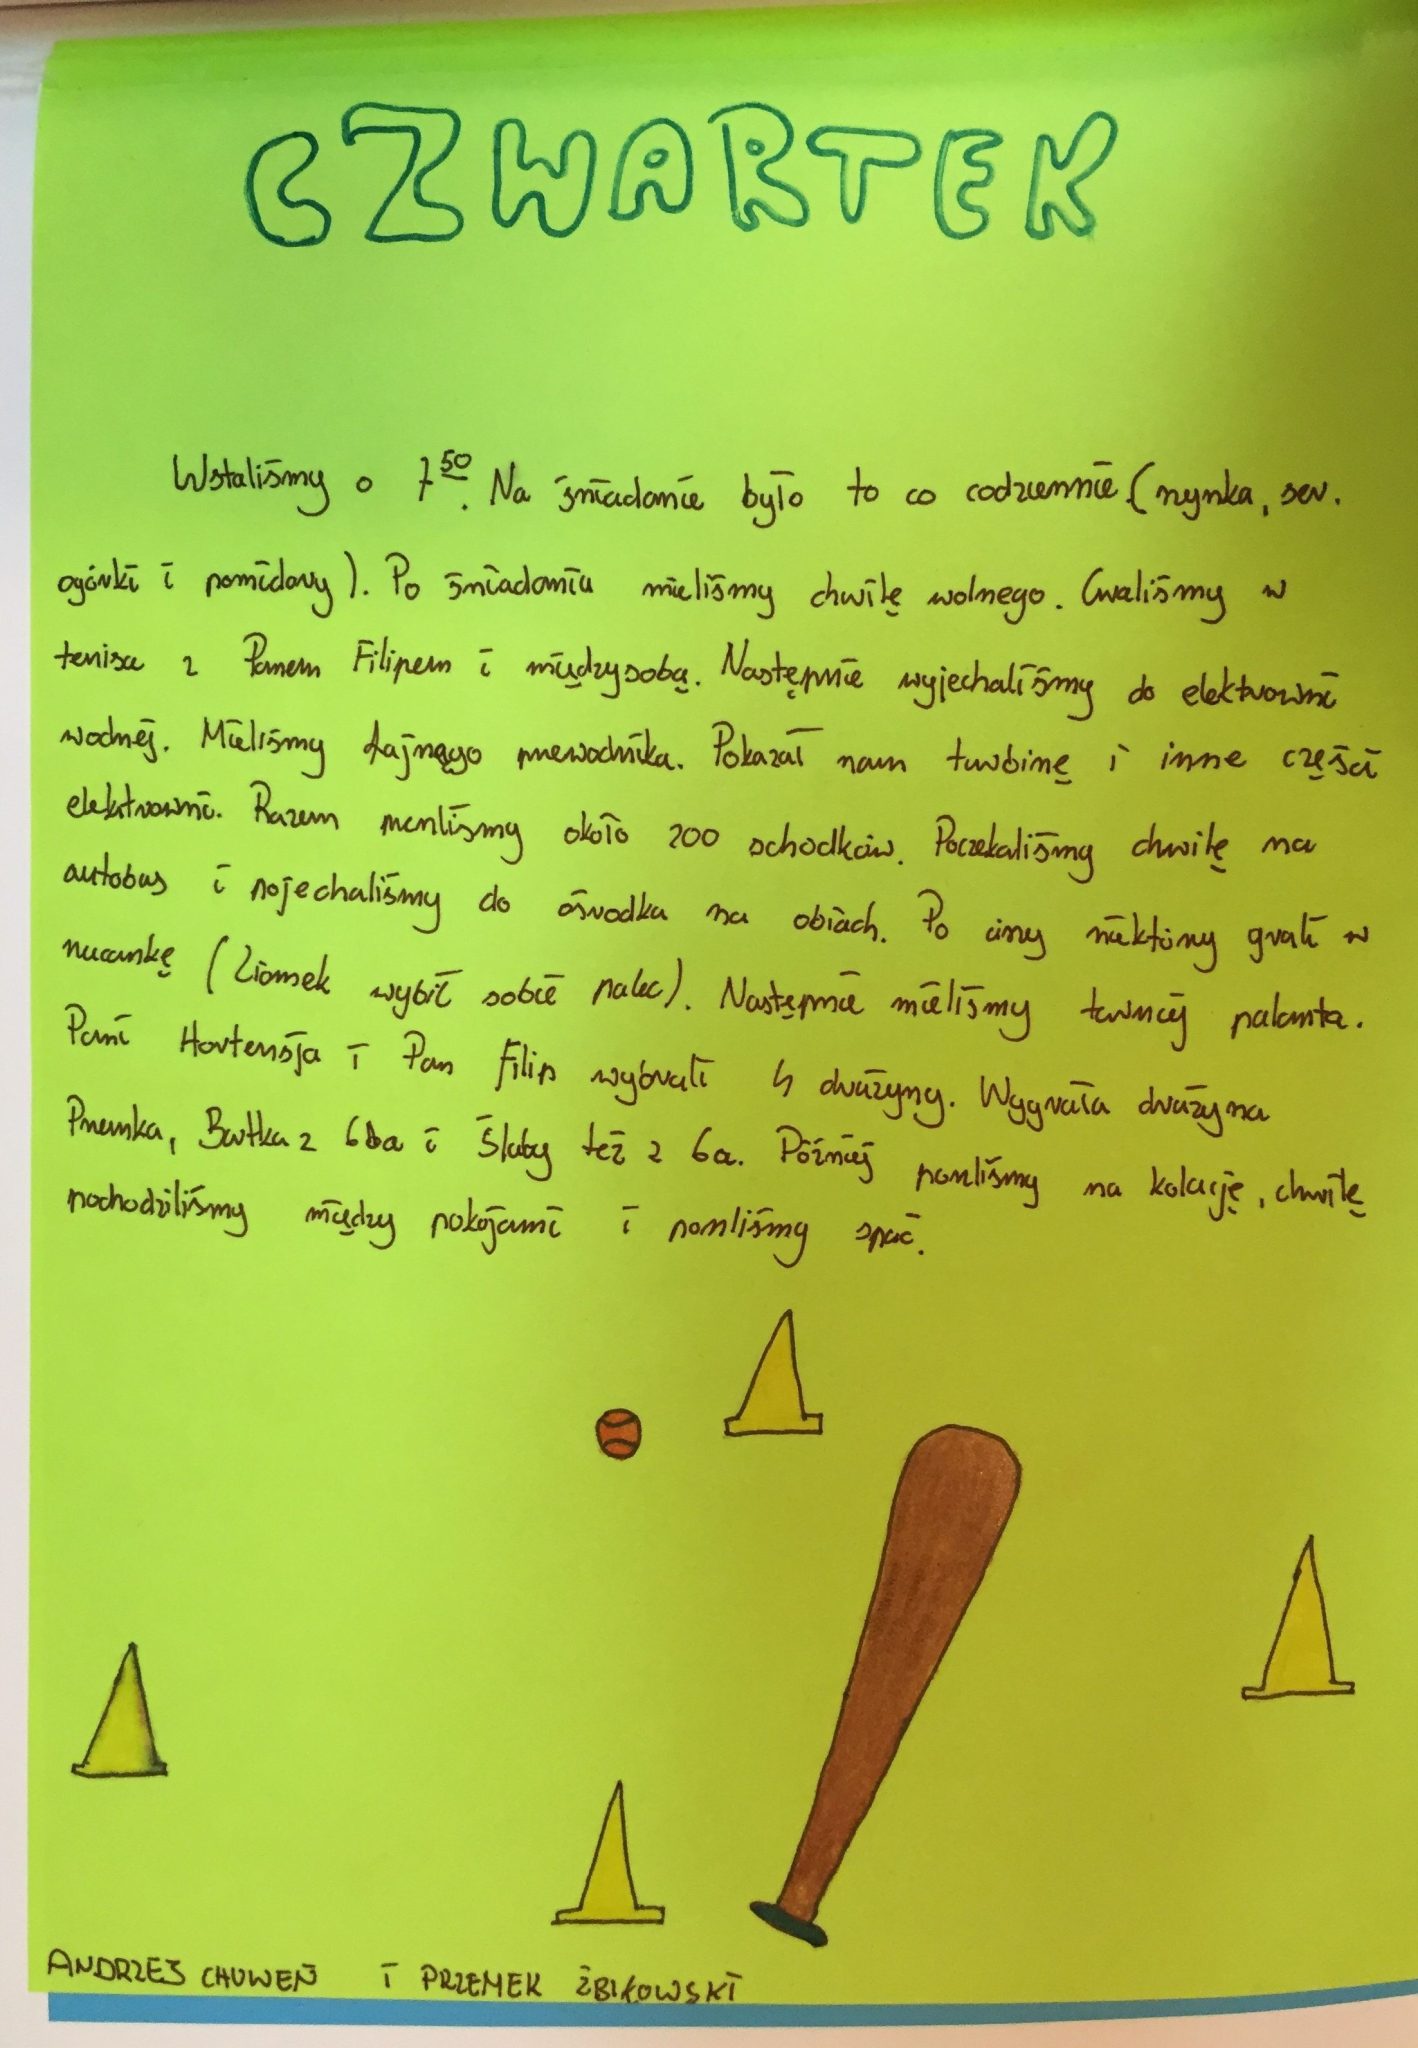 CZWARTEK
Wstaliśmy o 7⁵⁰. Na śniadanie było to co codziennie (szynka, ser.
ogórki i pomidory). Po śniadaniu mieliśmy chwilę wolnego. Graliśmy w
tenisa z Panem Filipem i międzysobą. Następnie wyjechaliśmy do elektrowni
wodnej. Mieliśmy fajnego przewodnika. Pokazał nam turbinę i inne części
elektrowni. Razem przeszliśmy około 200 schodków. Poczekaliśmy chwilę na
autobus i pojechaliśmy do ośrodka na obiach. Po ciszy niektórzy grali w
rzucankę (Ziomek wybił sobie palec). Następnie mieliśmy turniej palanta.
Pani Hortensja i Pan Filip wybrali 4 drużyny. Wygrała drużyna
Przemka, Bartka z 6a i Słaby też z 6a. Później poszliśmy na kolację, chwilę
pochodziliśmy między pokojami i poszliśmy spać.
ANDRZEJ CHUWEŃ I PRZEMEK ŻBIKOWSKI